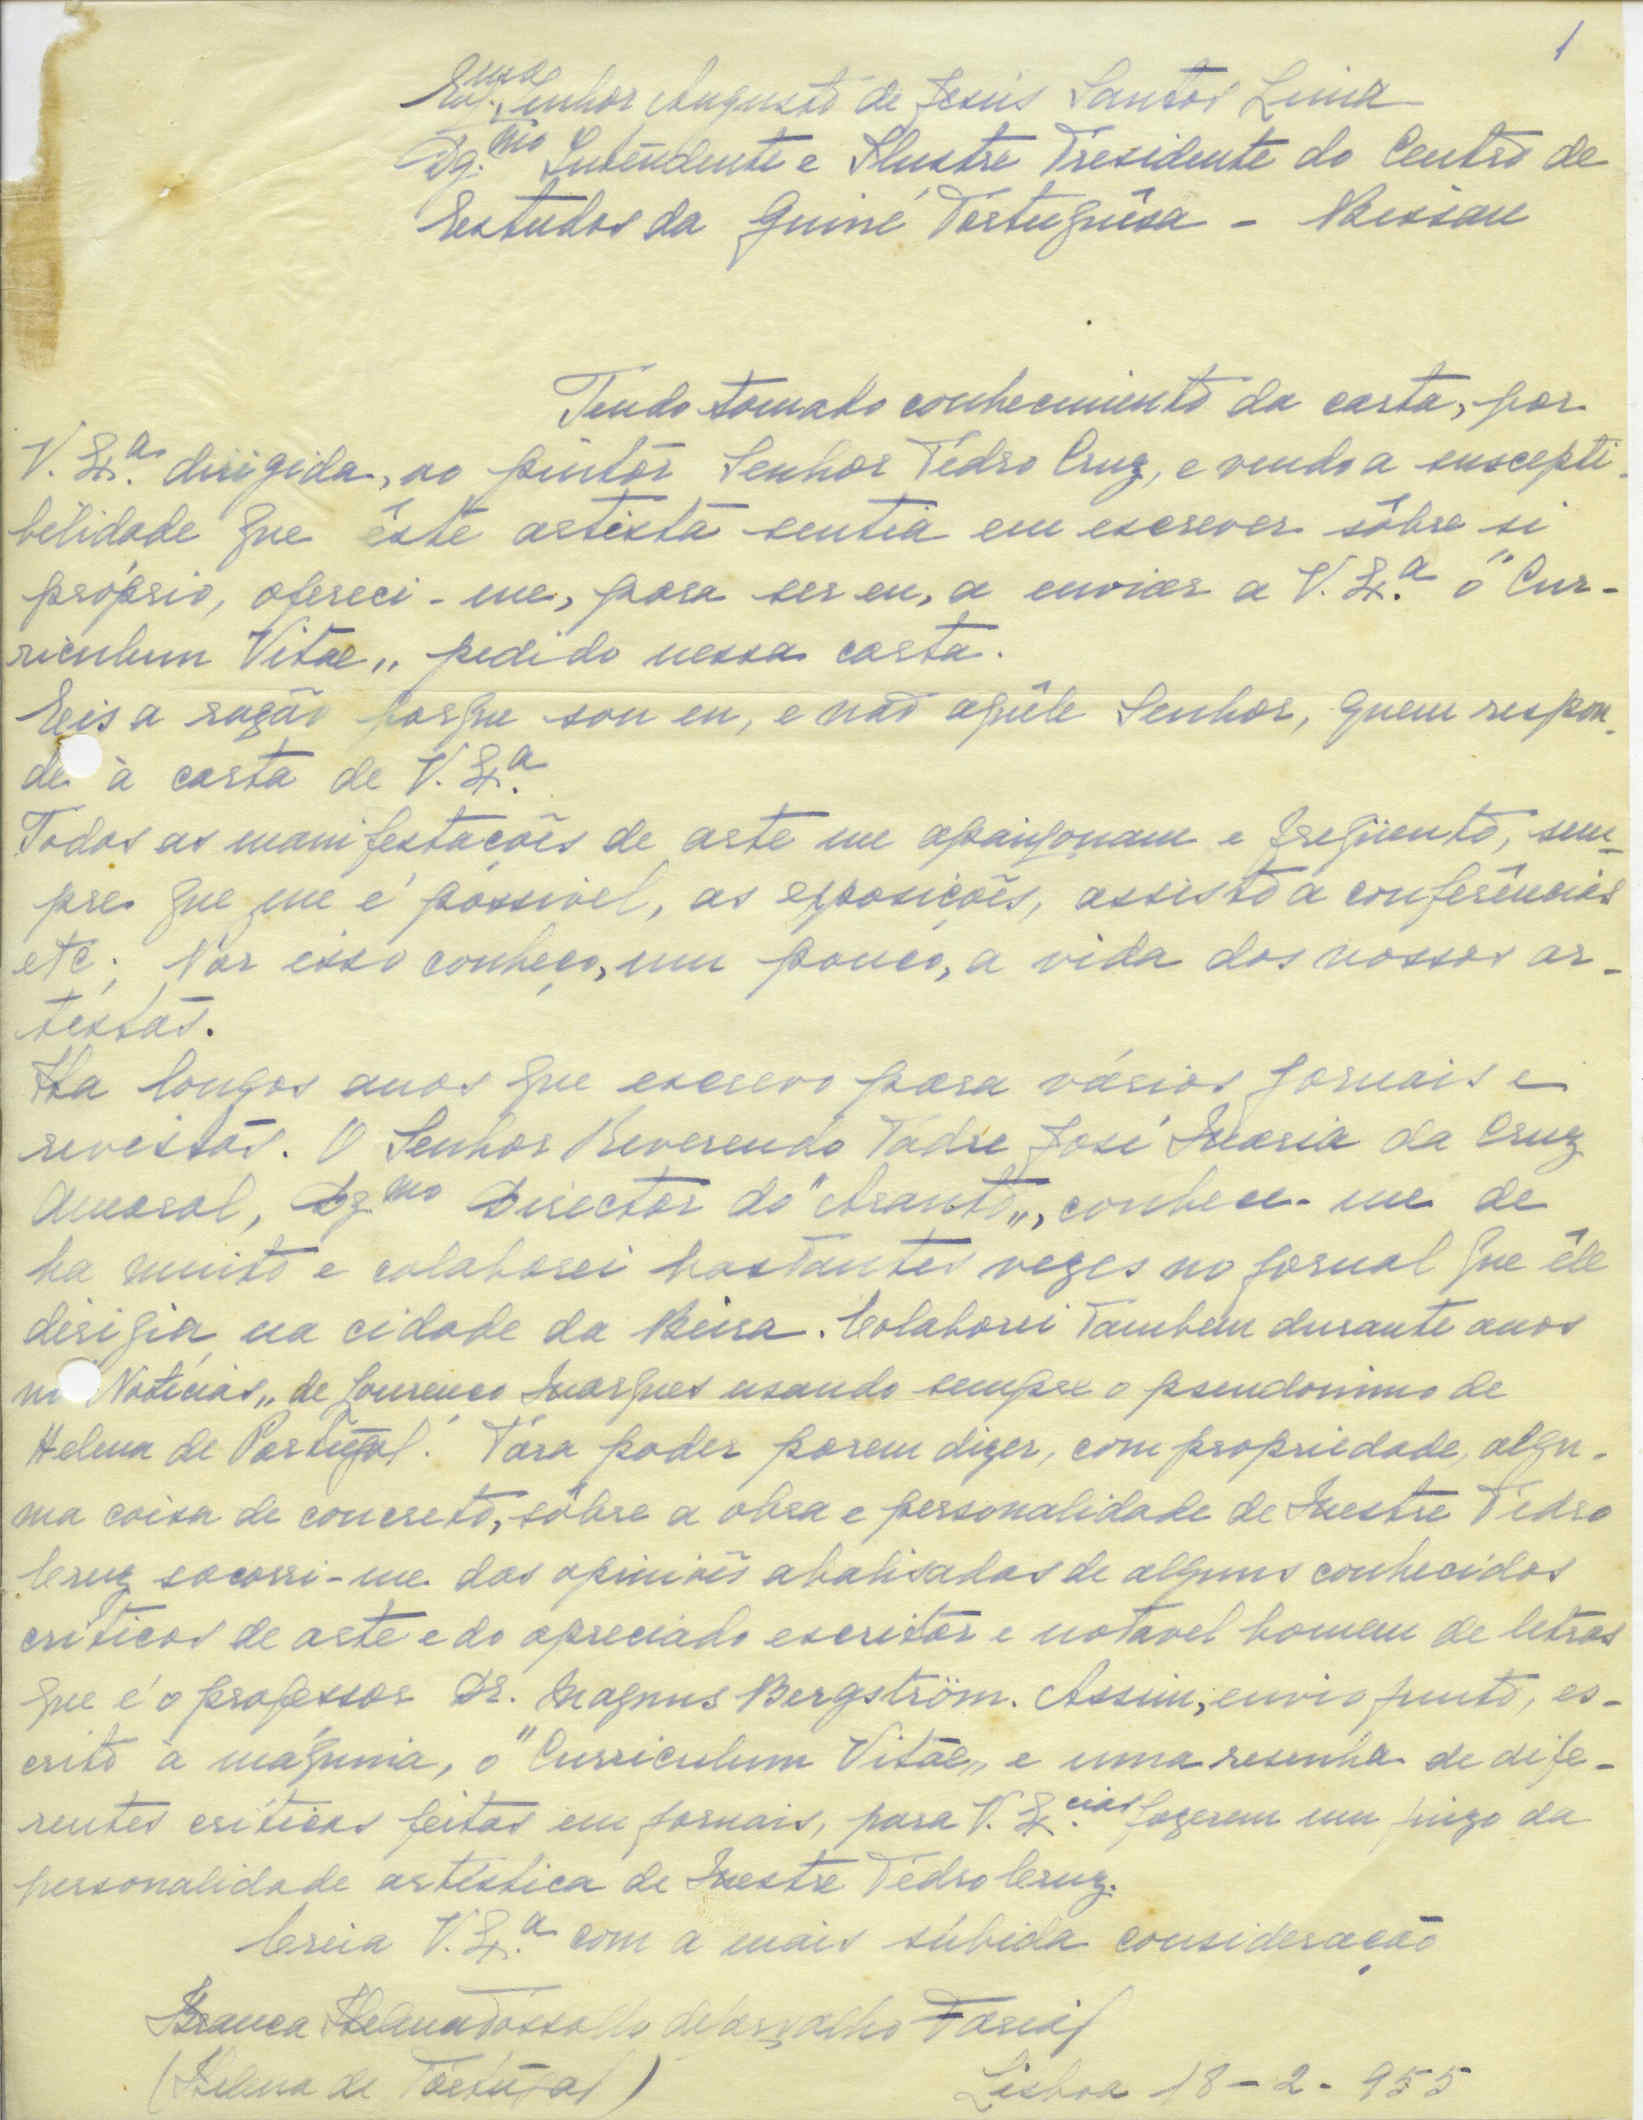 1
Ex.mo Senhor Augusto de Jesús Santos Lima
Dg.mo Intendente e Ilustre Presidente do Centro de
Estudos da Guiné Portuguêsa - Bissau
Tendo tomado conhecimento da carta, por
V. Ex.a dirigida, ao pintor Senhor Pedro Cruz, e vendo a suscepti-
bilidade que êste artista sentia em escrever sôbre si
próprio, ofereci-me, para ser eu, a enviar a V. Ex.a o "Cur-
riculum Vitae„ pedido nessa carta.
Eis a razão porque sou eu, e não aquêle Senhor, quem respon-
de à carta de V. Ex.a
Todas as manifestações de arte me apaixonam e freqüento, sem-
pre que me é possivel, as exposições, assisto a conferências
etc. Por isso conheço, um pouco, a vida dos nossos ar-
tistas.
Ha longos anos que escrevo para vários jornais e
revistas. O Senhor Reverendo Padre José Maria da Cruz
Amaral, Dg.mo Director do "Arauto„, conhece-me de
ha muito e colaborei bastantes vezes no jornal que êle
dirigia na cidade da Beira. Colaborei tambem durante anos
no Noticias„ de Lourenço Marques usando sempre o pseudonimo de
Helena de Portugal. Para poder porem dizer, com propriedade, algu-
ma coisa de concreto, sôbre a obra e personalidade de Mestre Pedro
Cruz socorri-me das opiniões abalisadas de alguns conhecidos
criticos de arte e do apreciado escritor e notavel homem de letras
que é o professor Dr. Magnus Bergström. Assim, envio junto, es-
crito à máquina, o "Curriculum Vitae„ e uma resenha de dife-
rentes criticas feitas em jornais, para V. Ex.cias fazerem um juizo da
personalidade artistica de Mestre Pedro Cruz.
Creia V. Ex.a com a mais súbida consideração
Branca Helena de Carvalho Faria
(Helena de Portugal)
Lisboa 18-2-955